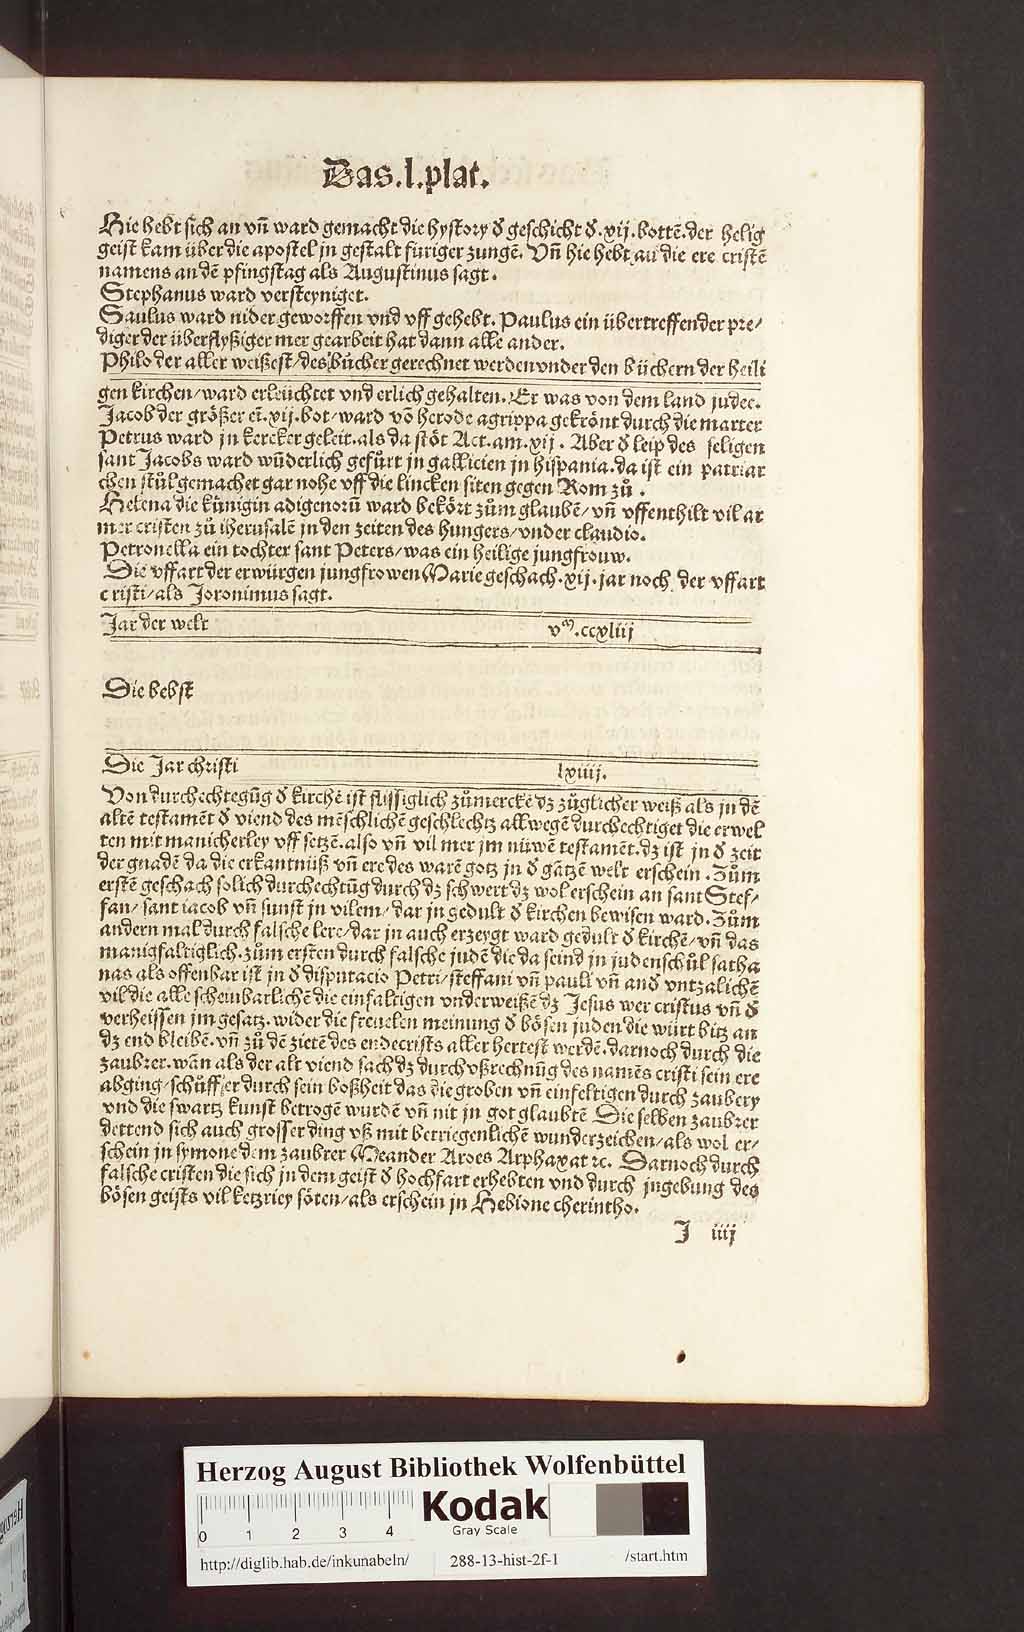 Das.l.plat.
Hie hebt sich an vn̄ ward gemacht die hystory d̕ geschicht d̕.xij.bottē.der helig
geist kam über die apostel jn gestalt füriger zungē. Vn̄ hie hebt an die ere cristē
namens an dē pfingstag als Augustinus sagt.
Stephanus ward versteyniget.
Saulus ward nider geworffen vnd vff gehebt. Paulus ein übertreffender pre/
diger der überflyßiger mer gearbeit hat dann alle ander.
Philo der aller weißest/des bücher gerechnet werden vnder den büchern der heili
gen kirchen/ward erleüchtet vnd erlich gehalten. Er was von dem land judee.
Jacob der größer ei.xij.bot/ward vō herode agrippa gekrönt durch die marter
Petrus ward jn kercker geleit.als da stöt Act.am.xij. Aber d̕ leip des seligen
sant Jacobs ward wūderlich gefůrt jn gallicien jn hispania.da ist ein patriar
chen stůl gemachet gar nohe vff die lincken siten gegen Rom zů.
Helena die künigin adigenorū ward bekört zům glaubē/vn̄ vffenthilt vil ar
mer cristen zů iherusalē jn den zeiten des hungers/vnder claudio.
Petronella ein tochter sant Peters/was ein heilige jungfrouw.
Die vffart der erwürgen jungfrowen Marie geschach.xij.jar noch der vffart
cristi/als Joronimus sagt.
Jar der welt vᵐ.ccxliij
Die bebst
Die Jar christi lxiiij.
Von durchechtegūg d̕ kirchē ist flissiglich zů merckē dz zůglicher weiß als jn dē
altē testamēt d̕ viend des mēschlichē geschlechtz allwegē durchechtiget die erwel
ten mit manicherley vff setzē.also vn̄ vil mer jm nüwē testamēt.dz ist jn d̕ zeit
der gnadē da die erkantnüß vn̄ ere des warē gotz jn d̕ gātzē welt erschein. Zům
erstē geschach solich durchechtūg durch dz schwert dz wol erschein an sant Stef/
fan/sant iacob vn̄ sunst jn vilem/dar jn gedult d̕ kirchen bewisen ward. Zům
andern mal durch falsche lere/dar jn auch erzeygt ward gedult d̕ kirchē/vn̄ das
manigfaltiglich.zům ersten durch falsche judē die da seind jn judenschůl satha
nas als offenbar ist jn d̕ disputacio Petri/steffani vn̄ pauli vn̄ and̕ vntzalichē
vil die alle scheinbarlichē die einfaltigen vnderweißē dz Jesus wer cristus vn̄ d̕
verheissen jm gesatz.wider die freuelen meinung d̕ bösen juden die würt bitz an
dz end bleibē.vn̄ zů dē zietē des endecrists aller hertest werdē.darnoch durch die
zaubrer.wān als der alt viend sach dz durch vßrechnūg des namēs cristi sein ere
abging/schůff er durch sein boßheit das die groben vn̄ einfeltigen durch zaubery
vnd die swartz kunst betrogē wurdē vn̄ nit jn got glaubtē Die selben zaubrer
dettend sich auch grosser ding vß mit betriegenlichē wunderzeichen/als wol er/
schein jn symone dem zaubrer Meander Aroes Arphaxat ⁊c. Darnoch durch
falsche cristen die sich jn dem geist d̕ hochfart erhebten vnd durch jngebung des
bösen geists vil ketzriey söten/als erschein jn Hebione cherintho.
J iiij
Herzog August Bibliothek Wolfenbüttel
0 1 2 3 4
Kodak
Gray Scale
http://diglib.hab.de/inkunabeln/ 288-13-hist-2f-1 /start.htm